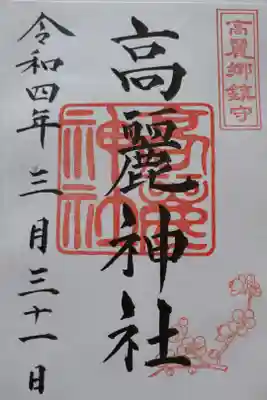 高麗郷鎮守
高麗神社
高麗
神社
令和四年三月三十一日